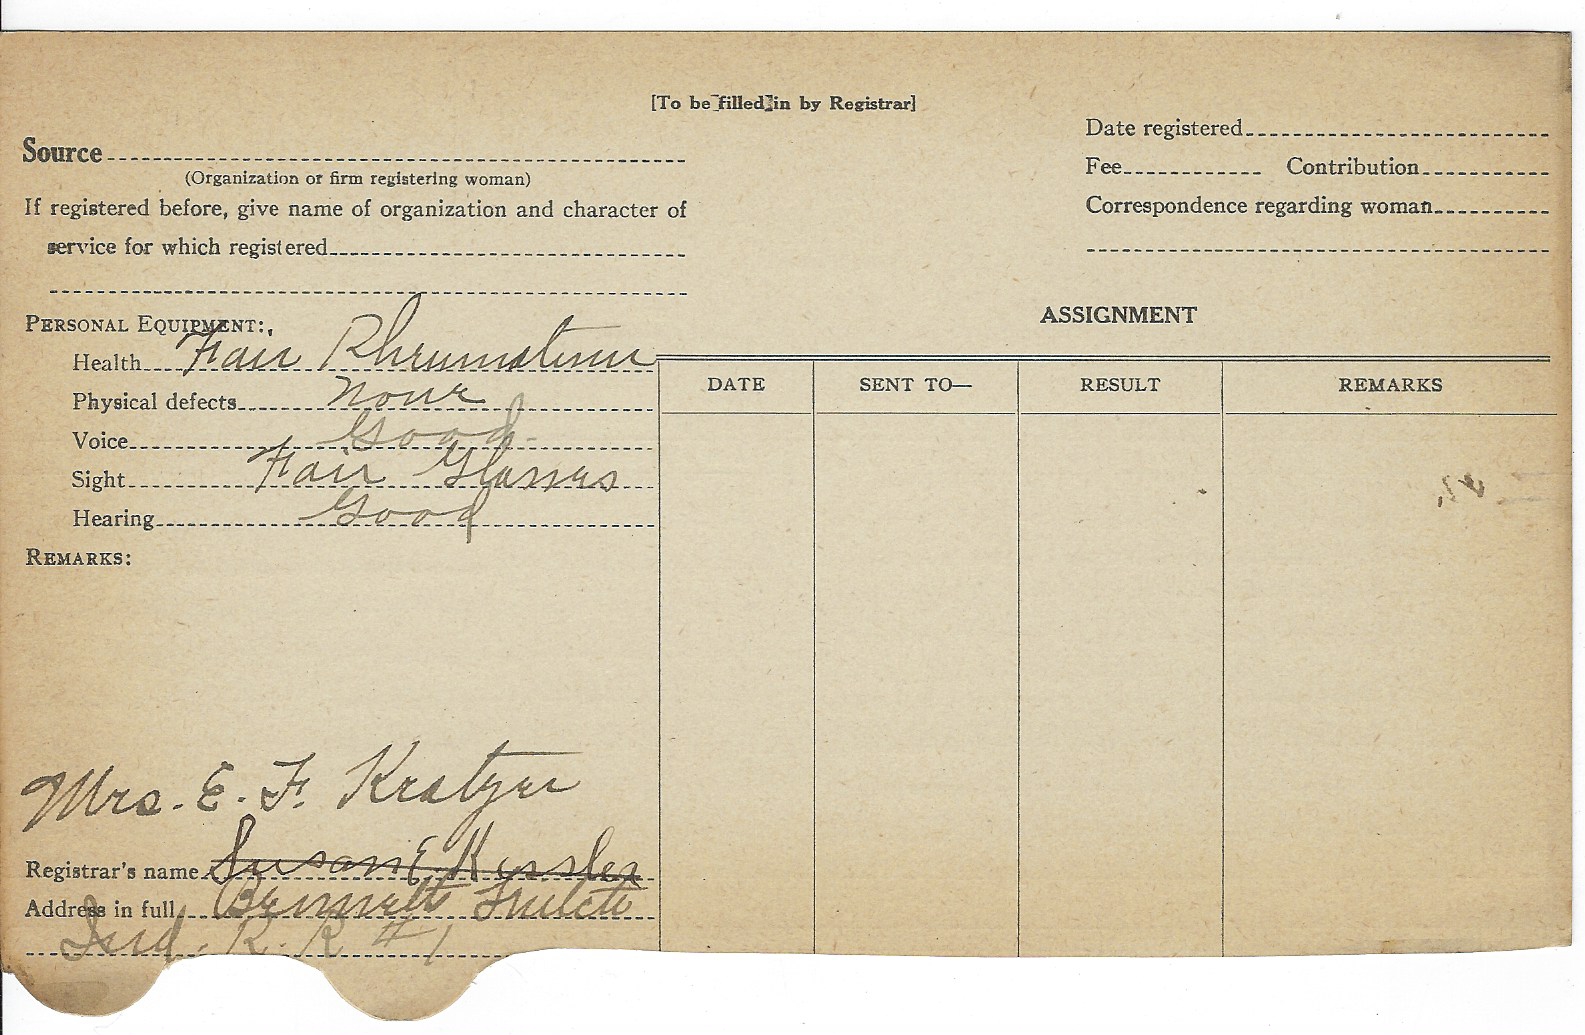 [To be filled in by Registrar]
Source
(Organization or firm registering woman)
If registered before, give name of organization and character of
service for which registered
Date registered
Fee Contribution
Correspondence regarding woman
PERSONAL EQUIPMENT:
Health Fair Rheumatism
Physical defects None
Voice Good
Sight Fair Glasses
Hearing Good
REMARKS:
Mrs. E. F. Kratzer
Registrar's name Susan E. Kessler
Address in full Bennetts
Ind. R. R #1
ASSIGNMENT
DATE SENT TO— RESULT REMARKS